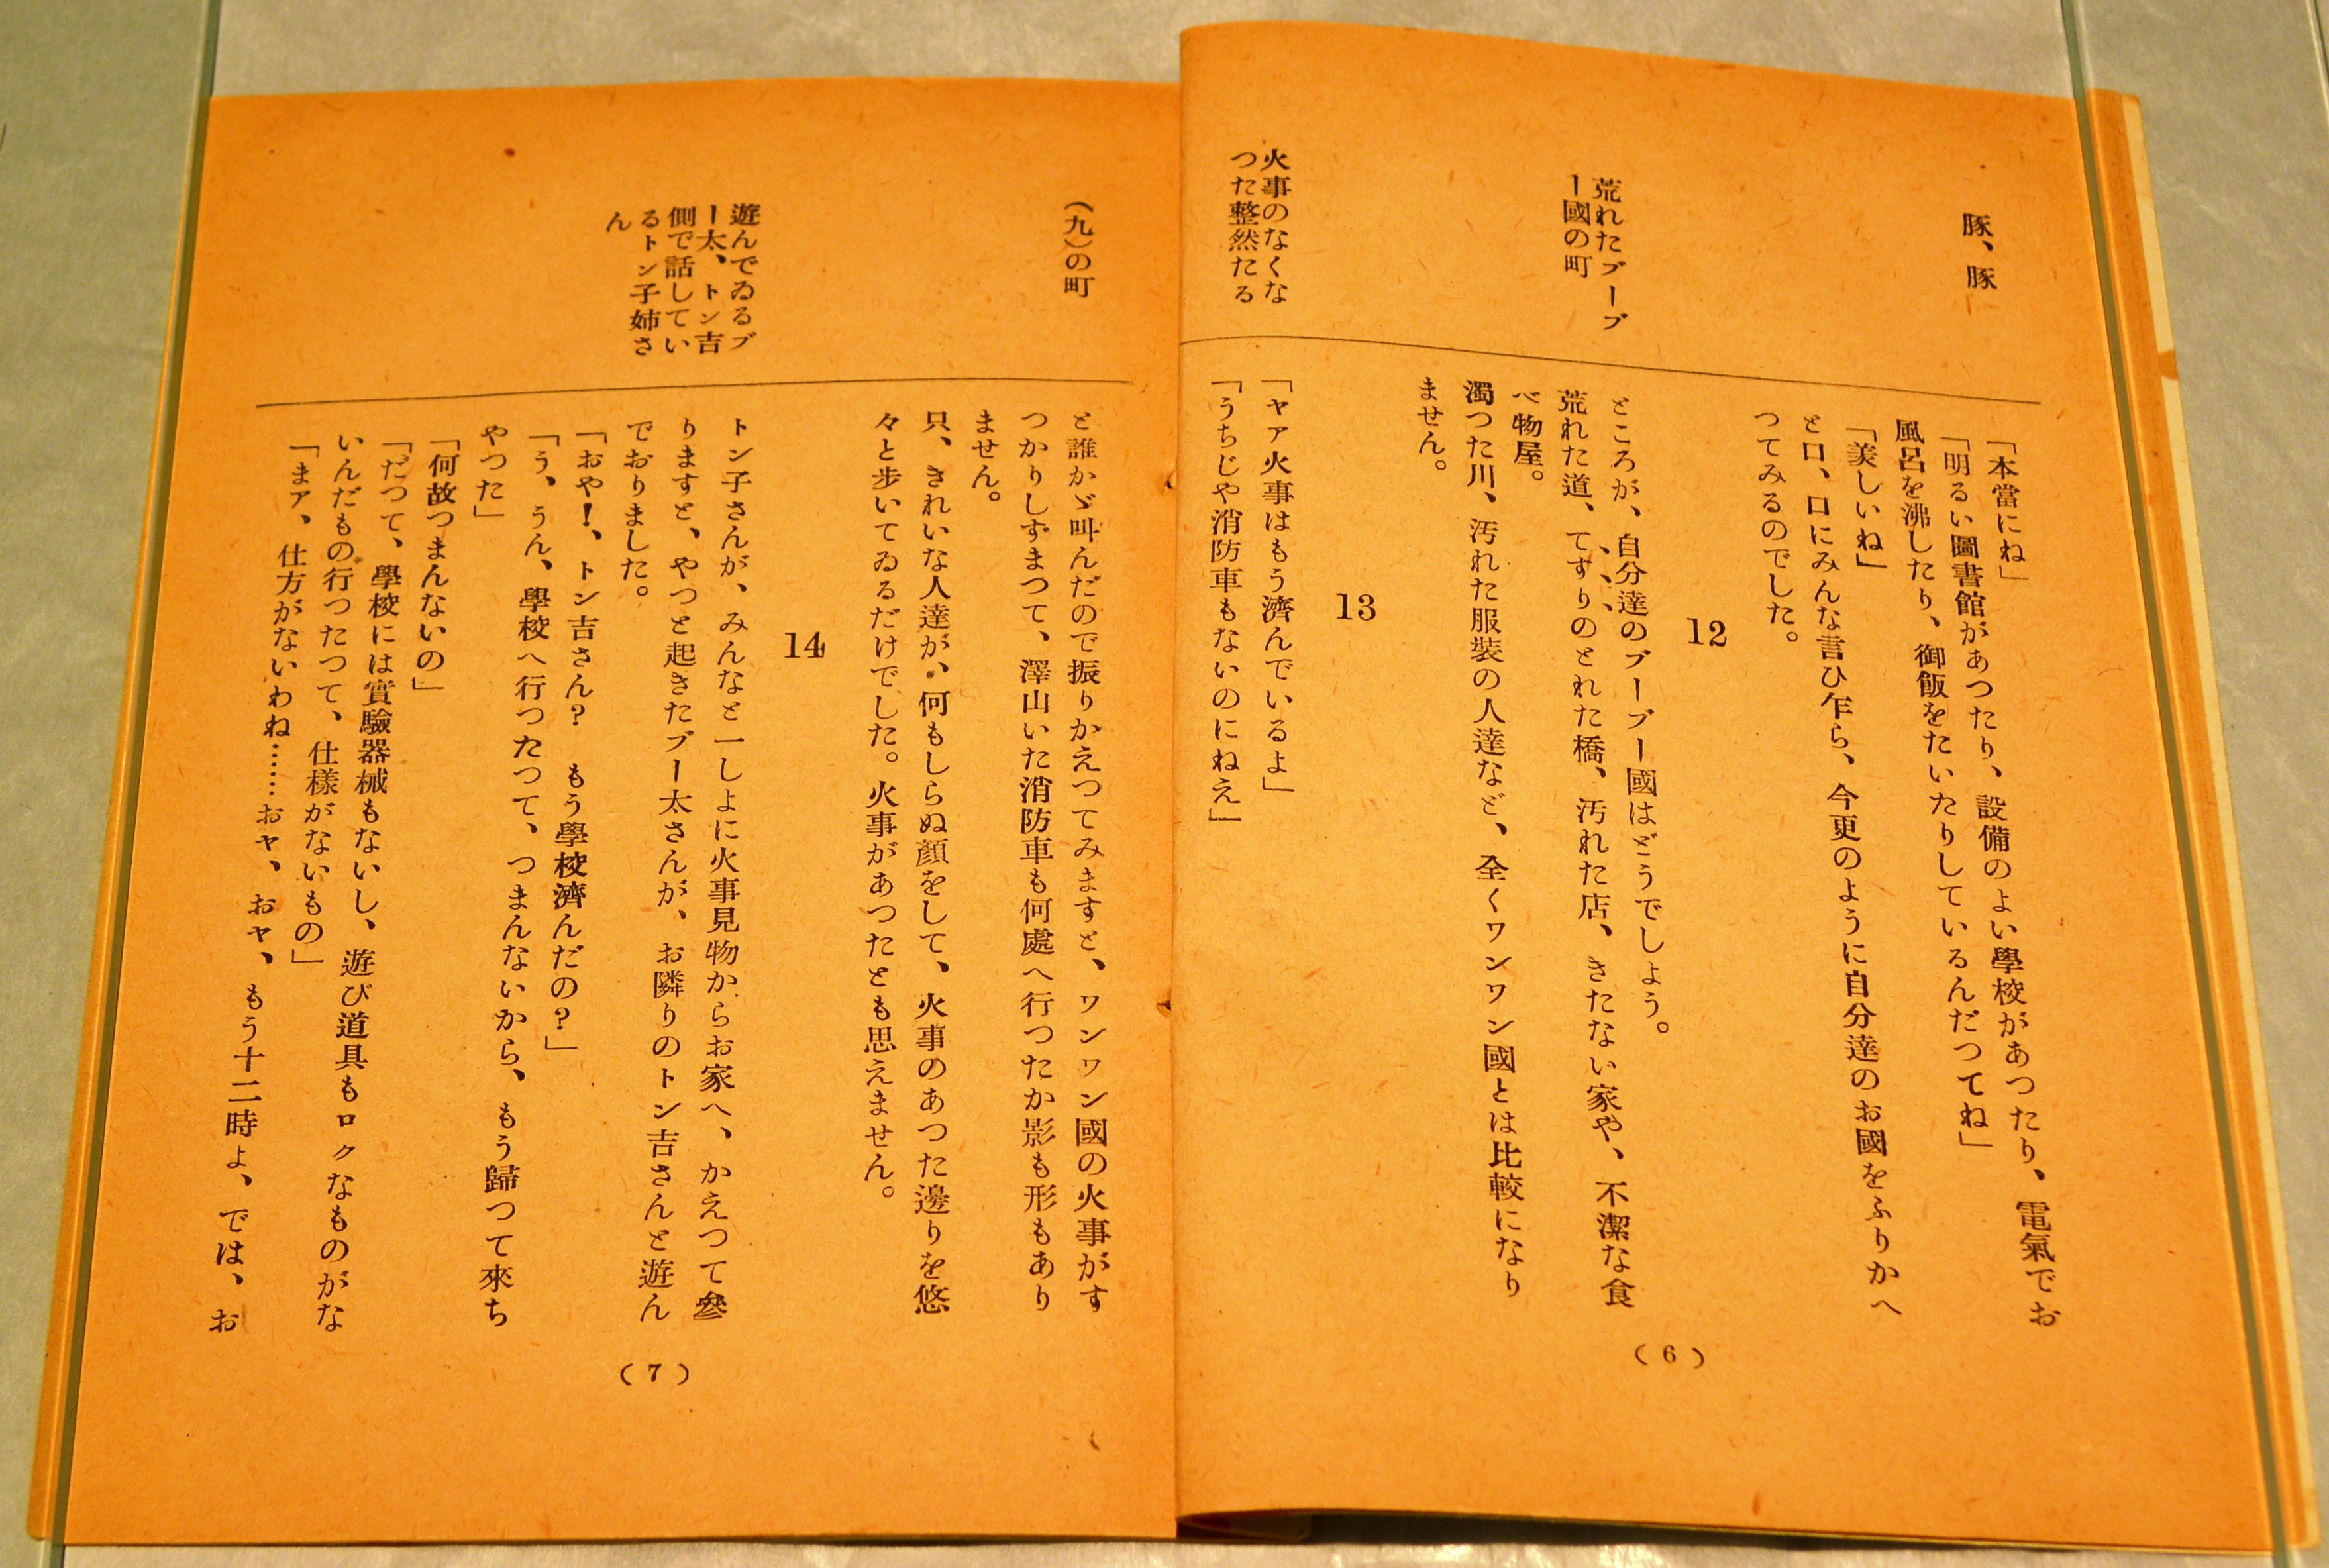 豚、豚
「本當にね」
「明るい圖書館があつたり、設備のよい學校があつたり、電氣でお
風呂を沸したり、御飯をたいたりしているんだつてね」
「美しいね」
と口、口にみんな言ひ乍ら、今更のように自分達のお國をふりかへ
つてみるのでした。
12
荒れたブーブ
ー國の町
ところが、自分達のブーブー國はどうでしよう。
荒れた道、てすりのとれた橋、汚れた店、きたない家や、不潔な食
べ物屋。
濁つた川、汚れた服裝の人達など、全くワンワン國とは比較になり
ません。
13
火事のなくな
つた整然たる
「ヤァ火事はもう濟んでいるよ」
「うちじや消防車もないのにねえ」
(6)
(九)の町
と誰かゞ叫んだので振りかえつてみますと、ワンワン國の火事がす
つかりしずまつて、澤山いた消防車も何處へ行つたか影も形もあり
ません。
只、きれいな人達が、何もしらぬ顔をして、火事のあつた邊りを悠
々と歩いてゐるだけでした。火事があつたとも思えません。
14
遊んでゐるブ
ー太、トン吉
側で話してい
るトン子姉さ
ん
トン子さんが、みんなと一しよに火事見物からお家へ、かえつて參
りますと、やつと起きたブー太さんが、お隣りのトン吉さんと遊ん
でおりました。
「おや!、トン吉さん? もう學校濟んだの?」
「う、うん、學校へ行つたつて、つまんないから、もう歸つて來ち
やつた」
「何故つまんないの」
「だつて、學校には實驗器械もないし、遊び道具もロクなものがな
いんだもの行つたつて、仕樣がないもの」
「まァ、仕方がないわね……おヤ、おヤ、もう十二時よ、では、お
(7)